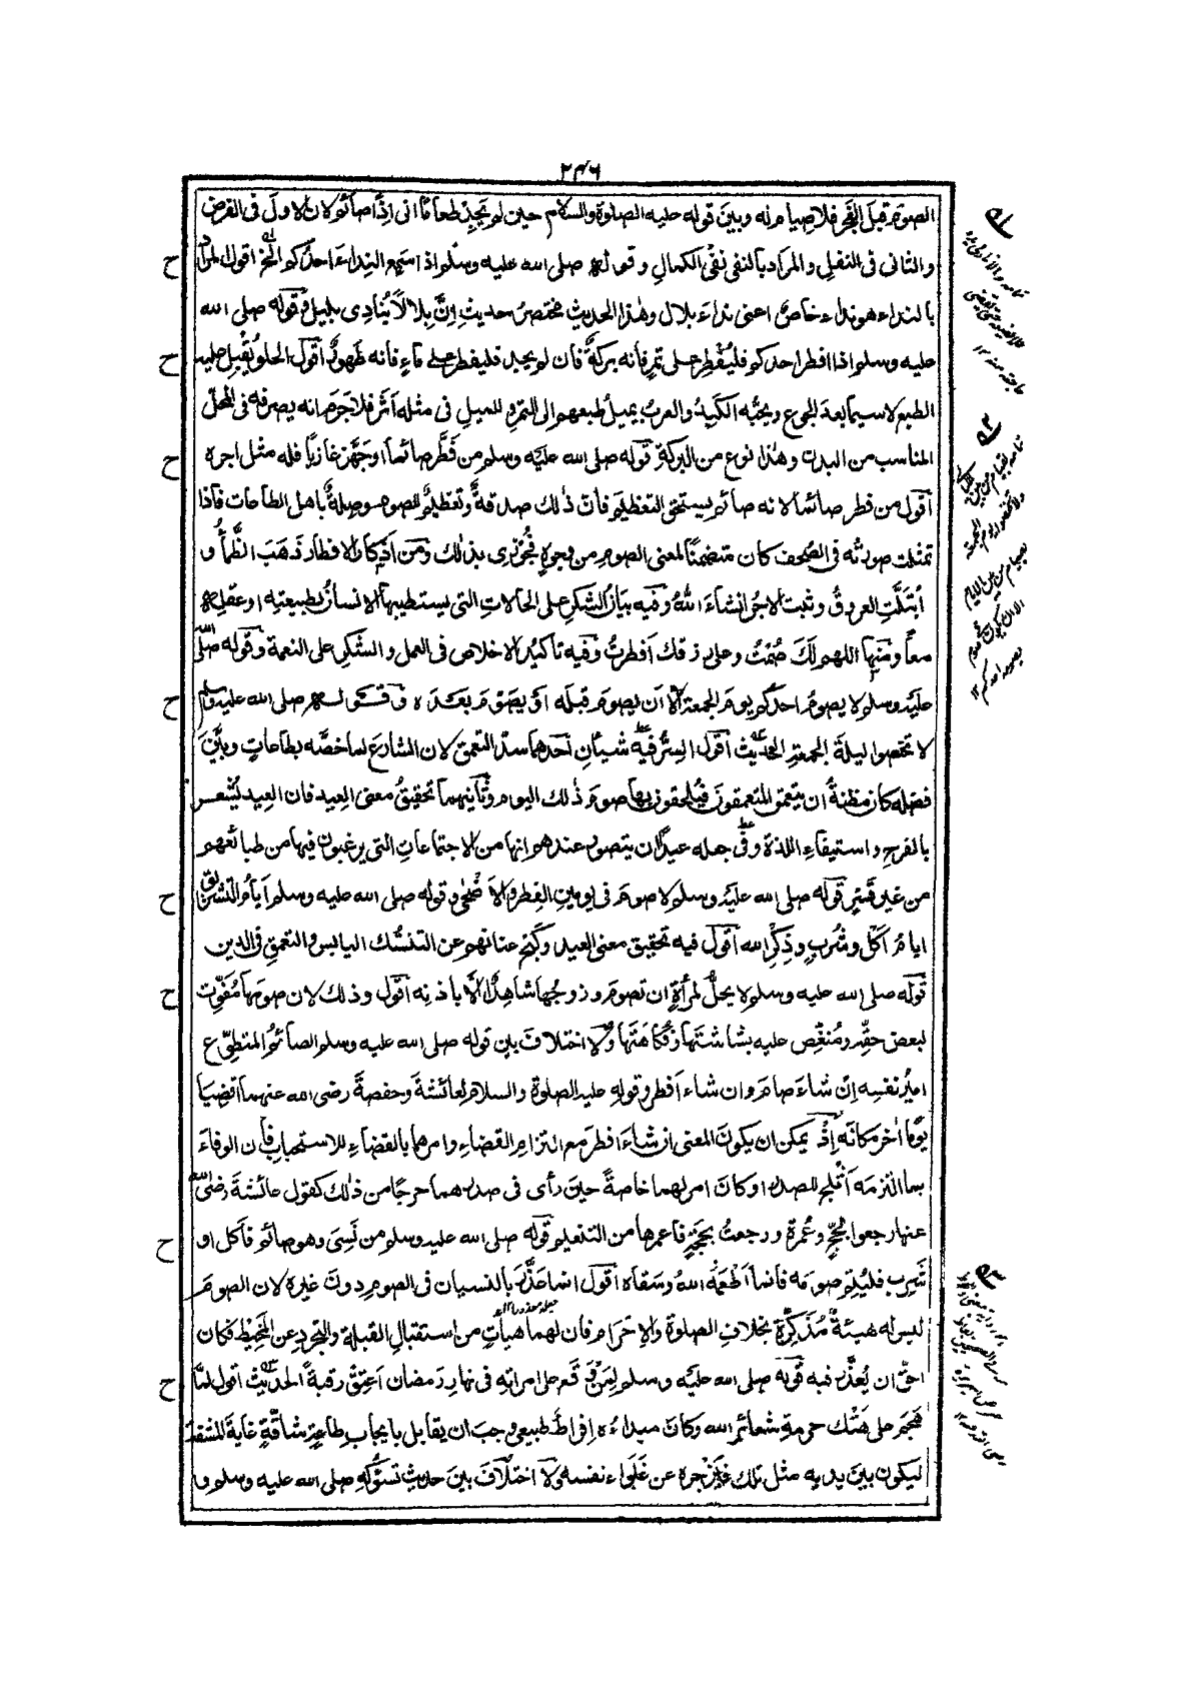 ٢٤٦
الصومَ قبلَ الفجر فلا صيام له وبينَ قوله عليه الصلوة والسلام حين لم يَجِدْ طعامًا انى اِذًا صائم لان الاولَ فى الفرض
والثانى فى النفلِ والمراد بالنفى نفْىُ الكمالِ وقوله صلى الله عليه وسلم اذا سَمِع النداءَ احدُكم الخ اقول المراد
بالنداء هو نداء خاصٌ اعنى نداءَ بلال وهٰذا الحديث مختصرُ حديثِ اِنَّ بلالًا يُنادِى بليلٍ وقوله صلى الله
عليه وسلم اذا افطر احدكم فليُفْطِر على تمرٍ فانه بركةٌ فان لم يجد فليفطر على ماءٍ فانه طَهورٌ اقول الحلو يُقْبِل عليه
الطبع لاسيما بعدَ الجوع ويحبُّه الكَبِدُ والعربُ يميلُ طبعهم الى التمرِ وللميلِ فى مثله اَثَر فلا جَرَمَ انه يصرفه فى المحلِّ
المناسب من البدن وهٰذا نوع من البركة قوله صلى الله عليه وسلم من فَطَّر صائمًا او جَهَّز غازيًا فله مثل اجره
اقول من فطر صائمًا لانه صائم يستحق التعظيمَ فان ذٰلك صدقةٌ وتعظيمٌ للصوم وصِلةٌ باهلِ الطاعات فاذا
تمثلت صورتُه فى الصُحف كان متضمنًا لمعنى الصوم من وجوهٍ فجُوزى بذٰلك ومن اَذكار الافطار ذَهَبَ الظَّمأُ و
ابْتَلَّتِ العروقُ وثبت الاجرُ انشاءَ اللهُ وفيه بيان الشكرِ على الحالاتِ التى يستطيبها الانسانُ بطبيعتِه او عقلِه
معًا ومنها اللهم لَكَ صُمْتُ وعلى رزقك اَفطرتُ وفيه تاكيدُ الاخلاص فى العمل والشكرِ على النعمة وقوله صلى الله
عليه وسلم لا يصومُ احدُكم يومَ الجمعةِ الا ان يصومَ قبلَه او يصوم بعدَه وقوله صلى الله عليه وسلم
لا تختصوا ليلةَ الجمعةِ الحديث اقول السِرُّ فيه شيئان احدهما سدُّ التعمق لان الشارعَ لما خصَّه بطاعاتٍ وبيَّن
فضلَه كان مظنةُ ان يتعمق المتعمقون فيُلحقون بها صومَ ذٰلك اليوم وثانيهما تحقيقُ معنى العيد فان العيد يُشعر
بالفرحِ واستيفاءِ اللذة وفى جعله عيدًا ان يتصور عندهم انها من الاجتماعاتِ التى يرغبون فيها من طبائعهم
من غير قَسْرٍ قوله صلى الله عليه وسلم لا صومَ فى يومينِ الفِطر والاَضْحى وقوله صلى الله عليه وسلم اَيامُ التشريق
ايامُ اَكل وشُربٍ وذِكْرِ الله اقول فيه تحقيق معنى العيد وكَبْحُ عنانهم عن التنسُّك اليابس والتعمقِ فى الدين
قوله صلى الله عليه وسلم لا يحلُّ لمرأةٍ ان تصومَ وزوجُها شاهدٌ الا باذنه اقول وذلك لان صومَها مُفَوِّت
لبعض حقِّه ومُنغِّص عليه بشاشتَها وفُكاهَتَها ولا اختلافَ بين قوله صلى الله عليه وسلم الصائمُ المتطوِّع
اميرُ نفسِه اِنْ شاءَ صامَ وان شاء اَفطر وقولِه عليه الصلوة والسلام لعائشةَ وحفصةَ رضى الله عنهما اقضِيَا
يومًا اٰخر مكانَه اِذْ يمكن ان يكونَ المعنى ان شاءَ افطرَ مع التزامِ القضاءِ وامرهما بالقضاءِ للاستحباب فان الوفاءَ
بما التزمه اَثلج للصدر او كان امر لهما خاصةً حينَ رأى فى صدرهما حرجًا من ذٰلك كقول عائشةَ رضى الله
عنها رجعوا بحجٍّ وعُمرةٍ ورجعتُ بحجَّةٍ فاعمرها من التنعيم قوله صلى الله عليه وسلم من نَسِىَ وهو صائم فاَكل او
شَرِب فليُتِمَّ صومَه فانما اَطْعَمَه اللهُ وسَقاه اقول انما عذَر بالنسيان فى الصوم دونَ غيره لان الصومَ
ليس له هيئةٌ مُذكِّرة بخلافِ الصلوة والاِحْرام فان لهما هيأتٍ من استقبالِ القبلة والتجردِ عن المَخِيْط فكان
احقّ ان يُعذَّر فيه قوله صلى الله عليه وسلم لِمَن وقَع على امراتِه فى نهارِ رمضان اَعتِقْ رقبةً الحديث اقول لمَّا
هَجَم على هَتْك حرمةِ شعائر الله وكانَ مبدأه اِفراطٌ طبيعى وجبَ ان يقابل بايجابِ طاعةٍ شاقّةٍ غايةَ المشقة
ليكون بينَ يديه مثل تلك فيزجره عن غُلَواء نفسه ولا اختلافَ بينَ حديثِ تسوُّكِه صلى الله عليه وسلم وما
ح
ح
ح
ح
ح
ح
ح
ح